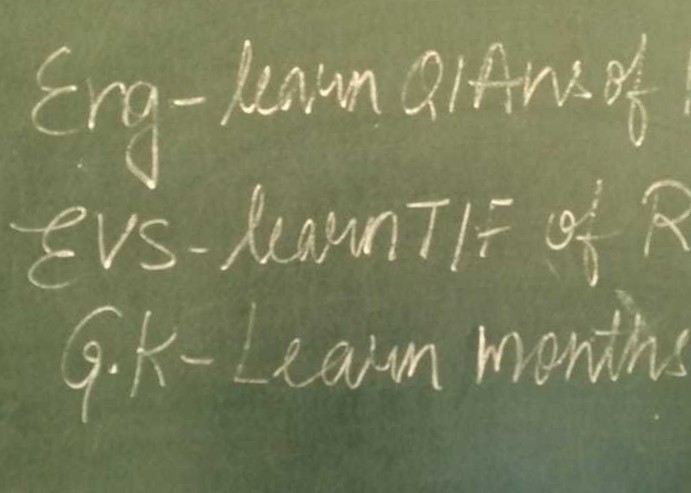 Eng - learn Q/Ans of
EVS - learn T/F of R
G.K - Learn months